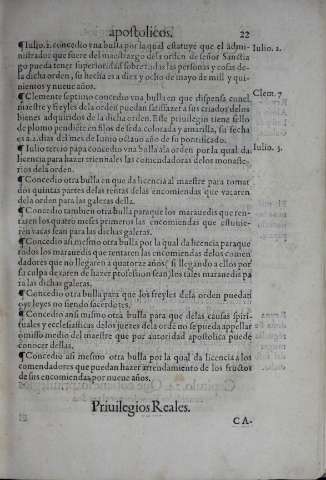 apostolicos. 22
¶Iulio.2. concedio vna bulla por la qual estatuye que el admi- Iulio. 2.
nistrador que fuere del maestrazgo dela orden de señor Sanctia
go pueda tener superioridad sobre todas las personas y cosas de-
la dicha orden, su fecha es a diez y ocho de mayo de mill y qui-
nientos y nueue años. Clem. 7
¶Clemente septimo concedio vna bulla en que dispensa conel
maestre y freyles dela orden puedan satisfazer a sus criados delos
bienes adquiridos de la dicha orden. Este priuilegio tiene sello
de plomo pendiẽte en filos de seda colorada y amarilla, su fecha
es a.2. dias del mes de Iunio octauo año de su pontificado.
¶Iulio tercio papa concedio vna bulla ala orden por la qual da Iulio. 3.
licencia para hazer triennales las comendadoras delos monaste-
rios dela orden.
¶Concedio otra bulla en que da licencia al maestre para tomar
dos quintas partes delas rentas delas encomiendas que vacaren
dela orden para las galeras della.
¶Concedio tambien otra bulla paraque los marauedis que ren-
taren los quatro meses primeros las encomiendas que estuuie-
ren vacas sean para las dichas galeras.
¶Concedio ansi mesmo otra bulla por la qual da licencia paraque
todos los marauedis que rentaren las encomiendas delos comen
dadores que no llegaren a quatorze años? si llegando a ellos por
su culpa dexaren de hazer profession sean los tales marauedis pa
ra las dichas galeras.
¶Concedio otra bulla para que los freyles dela orden puedan
oyr leyes no siendo sacerdotes.
¶Concedio ansi mismo otra bulla para que delas causas spiri-
tuales y ecclesiasticas delos juezes dela ordẽ no se pueda appellar
omisso medio del maestre que por autoridad apostolica puede
conocer dellas.
¶Concedio asi mesmo otra bulla por la qual da licencia a los
comendadores que puedan hazer arrendamiento de los fructos
de sus encomiendas por nueue años.
Priuilegios Reales.
CA-